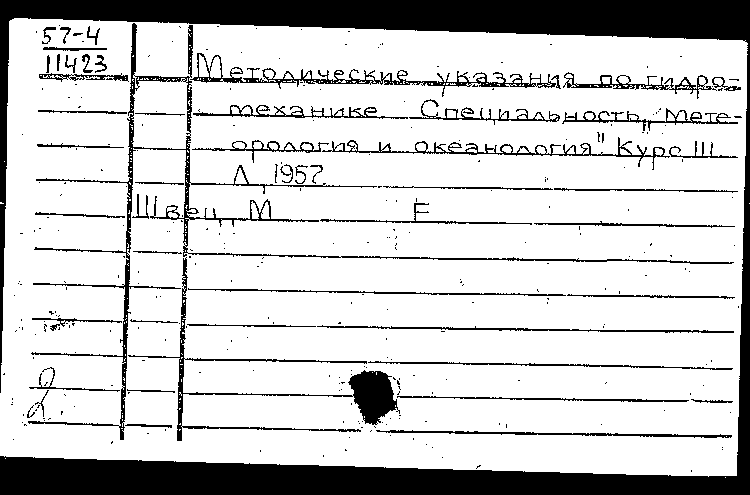 57-4
11423
Методические указания по гидро-
механике Специальность „Мете-
орология и океанология" Курс III
Л, 1957
Швец, М Е
2.